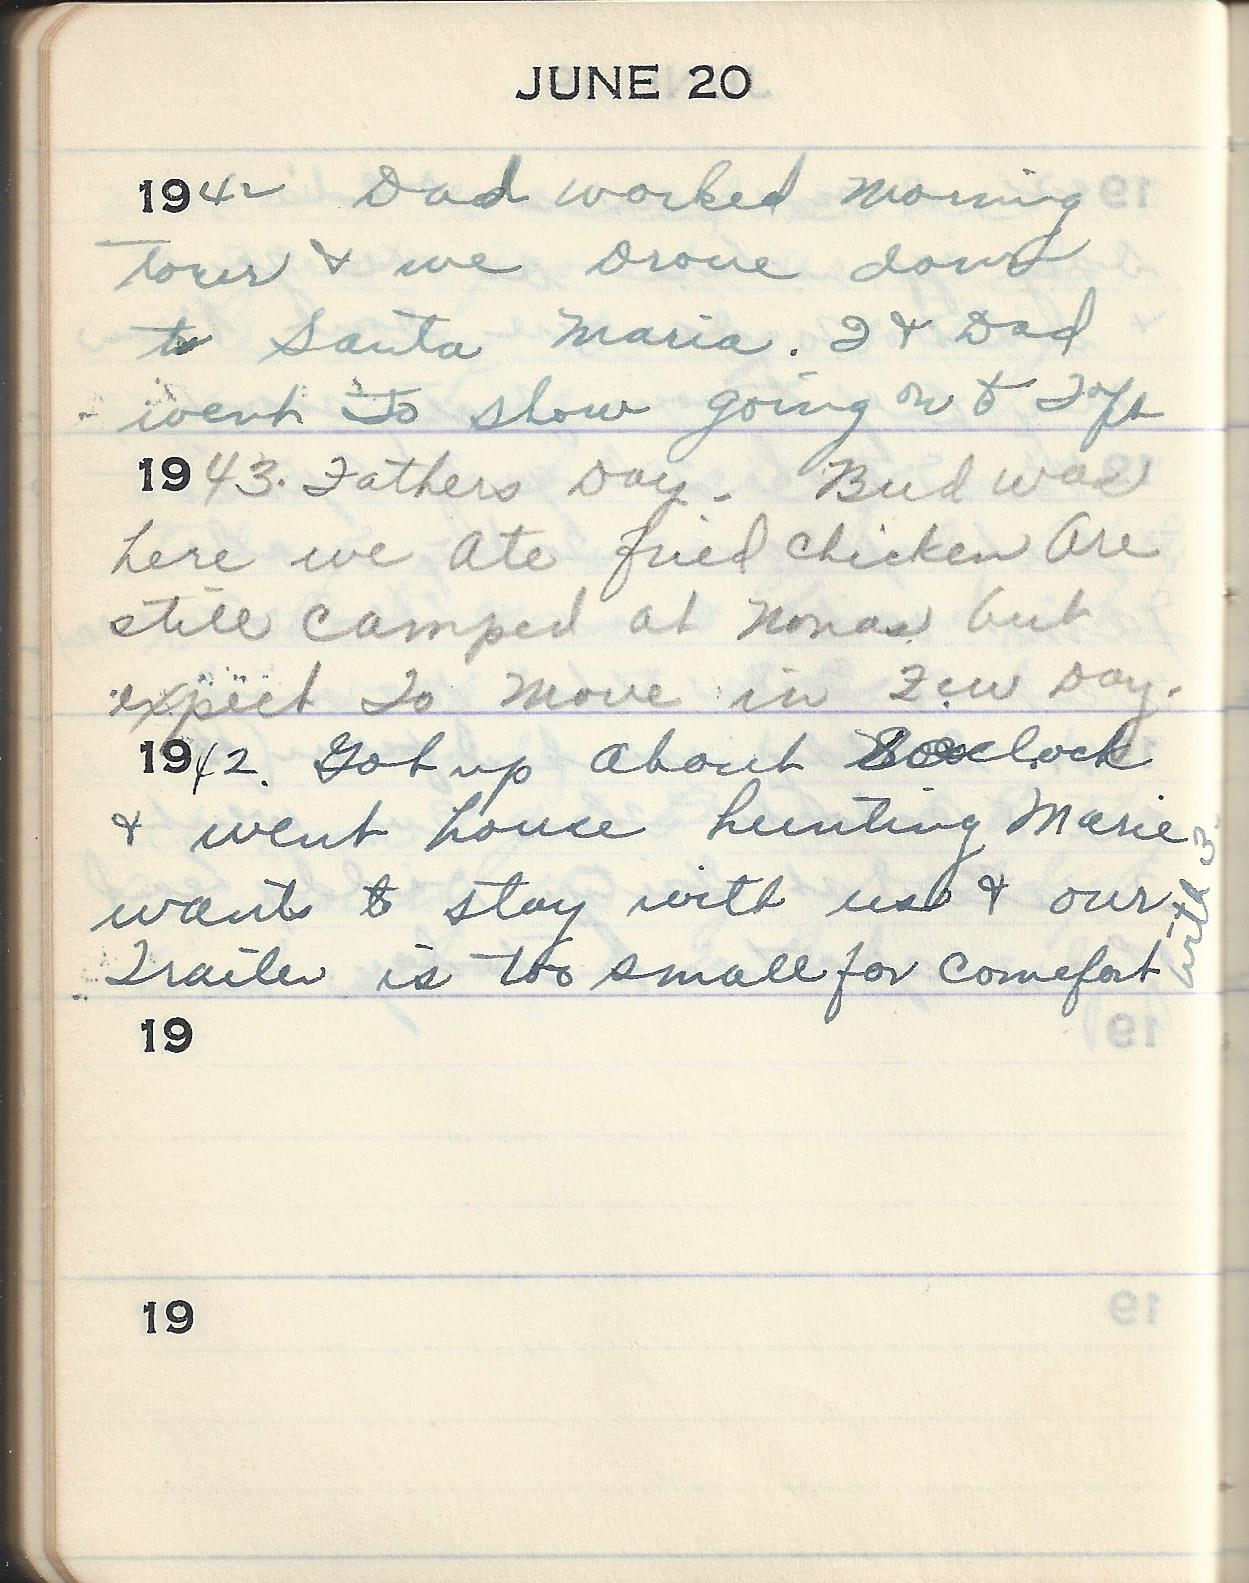 JUNE 20
1942 Dad worked morning
tower & we Drove down
to Santa Maria. I & Dad
went to show going on to Taft
1943. Fathers Day. Bud was
here we ate fried chicken Are
still camped at Nonas but
expect to move in Few Day.
1942. Got up about 8 oclock
& went house hunting Marie
wants to stay with us & our
Trailer is too small for comefort
with 3.
19
19